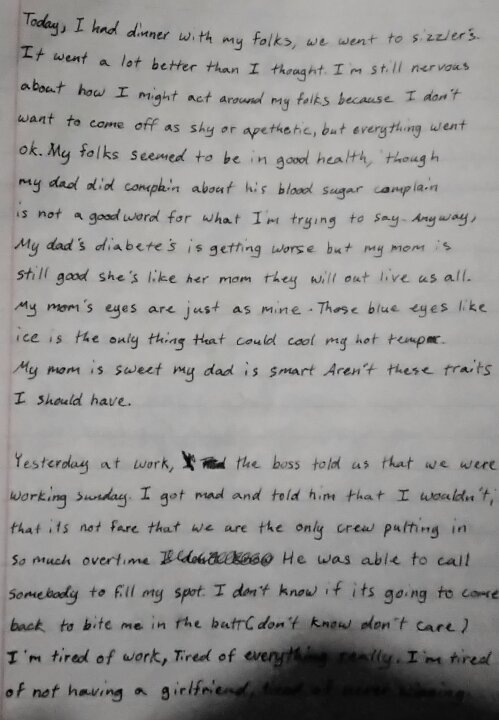 Today, I had dinner with my folks, we went to sizzler's.
It went a lot better than I thought. I'm still nervous
about how I might act around my folks because I don't
want to come off as shy or apethetic, but everything went
ok. My folks seemed to be in good health, though
my dad did complain about his blood sugar complain
is not a good word for what I'm trying to say. Anyway,
My dad's diabete's is getting worse but my mom is
still good she's like her mom they will out live us all.
My mom's eyes are just as mine. Those blue eyes like
ice is the only thing that could cool my hot temper.
My mom is sweet my dad is smart Aren't these traits
I should have.
Yesterday at work, the boss told us that we were
working sunday. I got mad and told him that I wouldn't,
that its not fare that we are the only crew putting in
so much overtime He was able to call
somebody to fill my spot. I don't know if its going to come
back to bite me in the butt (don't know don't care)
I'm tired of work, Tired of everything really. I'm tired
of not having a girlfriend, tired of never winning.